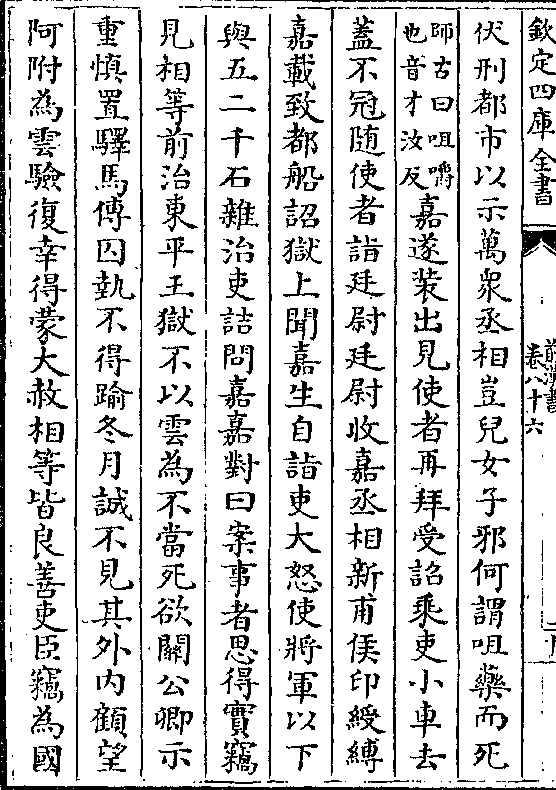 欽定四庫全書
前漢書
卷八十六
伏刑都市以示萬衆丞相豈兒女子邪何謂咀藥而死
師古曰咀嚼
也音才汝反
嘉遂装出見使者再拜受詔乘吏小車去
蓋不冠随使者詣廷尉廷尉收嘉丞相新甫侯印綬縛
嘉載致都船詔獄上聞嘉生自詣吏大怒使將軍以下
與五二千石雜治吏詰問嘉嘉對曰案事者思得實竊
見相等前治東平王獄不以雲為不當死欲關公卿示
重慎置驛馬傳囚埶不得踰冬月誠不見其外内顧望
阿附為雲驗復幸得蒙大赦相等皆良善吏臣竊為國